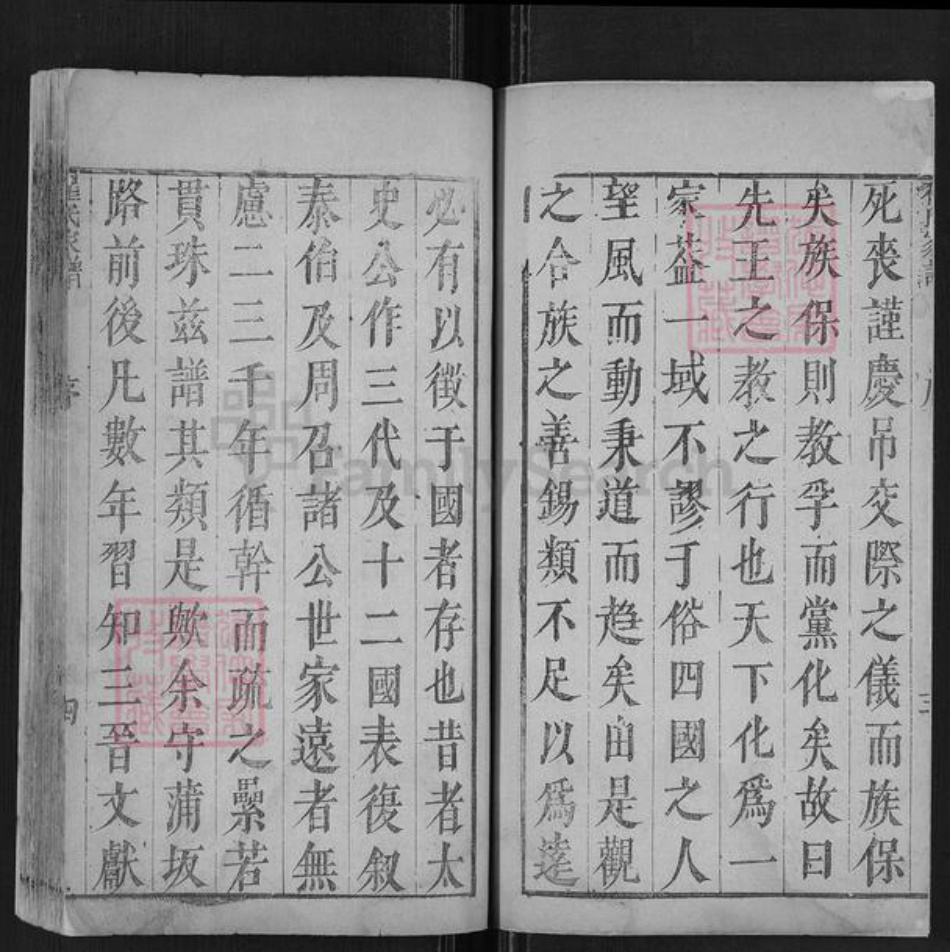 死喪謹慶吊交際之儀而族保
矣族保則教孚而黨化矣故曰
先王之教之行也天下化爲一
家葢一域不謬于俗四國之人
望風而動秉道而趋矣由是觀
之合族之善錫類不足以爲逹
三
必有以徵于國者存也昔者太
史公作三代及十二國表復叙
泰伯及周召諸公世家遠者無
慮二三千年循幹而疏之纍若
貫珠兹譜其類是歟余守蒲坂
路前後凡數年習知三晉文獻
氏家譜
序
四
FamilySearch